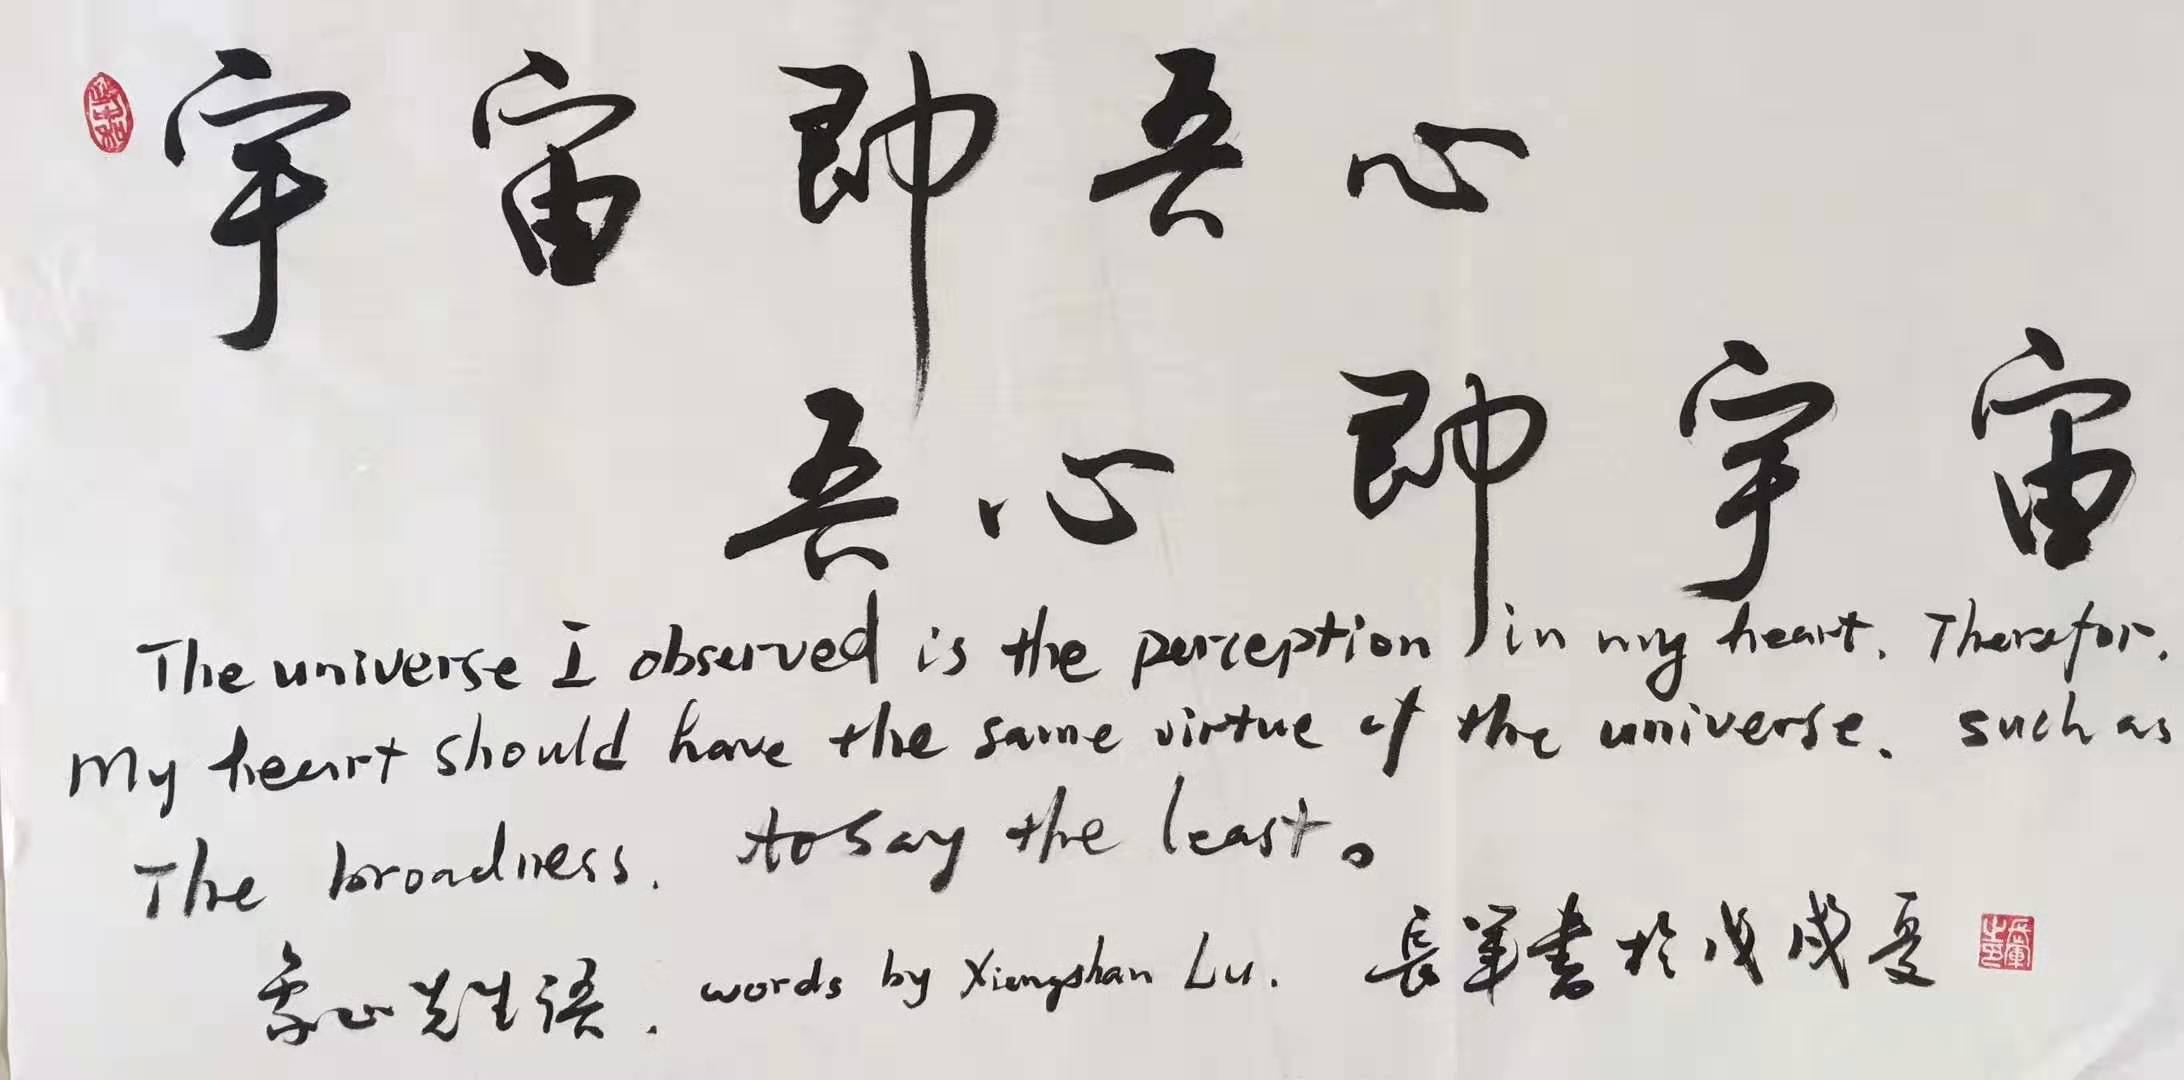 宇宙即吾心
吾心即宇宙
The universe I observed is the perception in my heart. Therefor.
My heart should have the same virtue of the universe. such as
The broadness. to say the least。
象山先生语. words by Xiangshan Lu. 長军書於戊戌夏